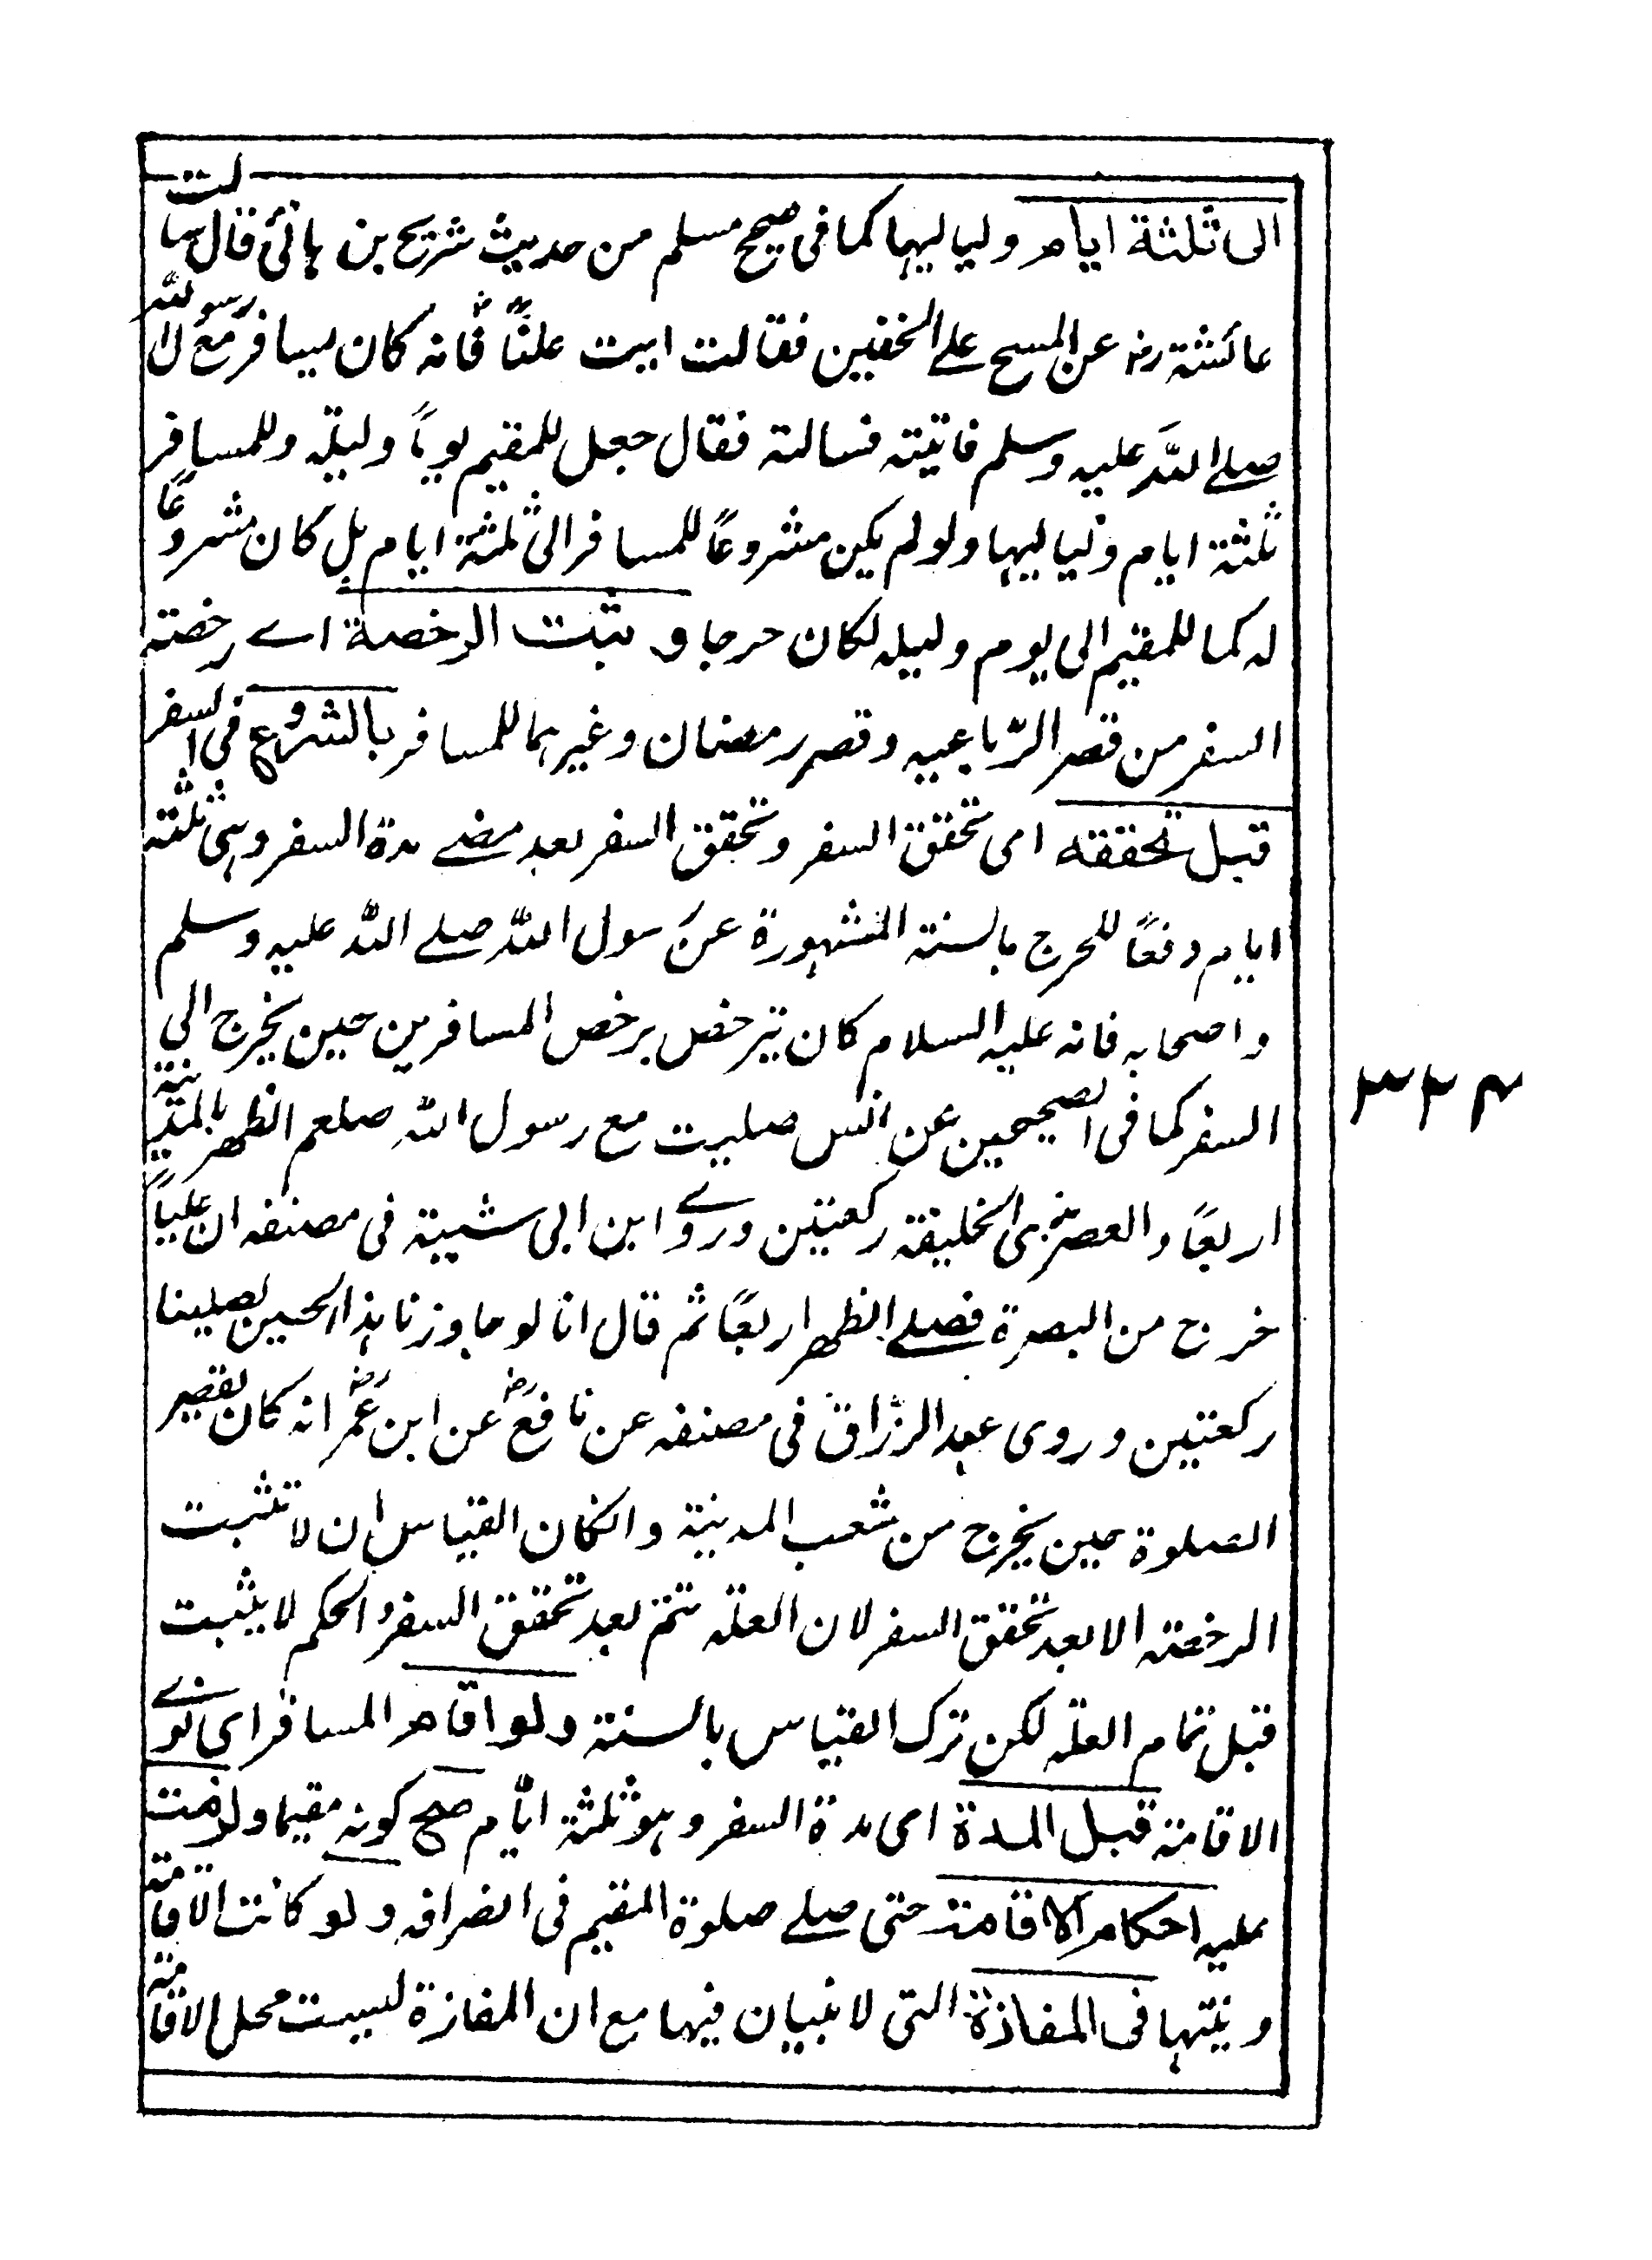 الى ثلثة ايام ولياليها كما فى صحيح مسلم من حديث شريح بن هانئ قال سالت
عائشة رض عن المسح على الخفين فقالت ايت عليًا رض فانه كان يسافر مع رسول الله
صلے الله عليه وسلم فاتيته فسالته فقال جعل للمقيم يومًا وليلة وللمسافر
ثلثة ايام ولياليها ولو لم يكن مشروعًا للمسافر الى ثلثة ايام بل كان مشروعًا
له كما للمقيم الى يوم وليله لكان حرجا و يثبت الرخصة اے رخصته
السفر من قصر الرّباعيه وقصر رمضان وغيرهما للمسافر بالشروع فى السفر
قبل تحققه اى تحقق السفر وتحقق السفر بعد مضے مدة السفر وهى ثلثة
ايام دفعًا للحرج بالسنة المشهورة عن رسول الله صلے الله عليه وسلم
واصحابه فانه عليه السلام كان يترخص برخص المسافرين حين يخرج الى
السفر كما فى الصحيحين عن انس صليت مع رسول الله صلعم الظهر بالمدينة
اربعًا والعصر بذى الخليفة ركعتين وروے ابن ابى شيبة فى مصنفه ان عليًا
خرج من البصرة فصلے الظهر اربعًا ثم قال انا لو جاوزنا هذا الحين لصلينا
ركعتين وروى عبد الرزاق فى مصنفه عن نافع رض عن ابن عمر رض انه كان يقصر
الصلوة حين يخرج من شعب المدينة وانكان القياس ان لا تثبت
الرخصة الا بعد تحقق السفر لان العلة تتم بعد تحقق السفر والحكم لا يثبت
قبل تمام العلة لكن ترك القياس بالسنة ولو اقام المسافر اى نوے
الاقامة قبل المدة اى مدة السفر وهو ثلثة ايّام صح كونه مقيما ولزمت
عليه احكام الاقامة حتى صلے صلوة المقيم فى انصرافه ولو كانت الاقامة
ونيتها فى المفازة التى لا بنيان فيها مع ان المفازة ليست محل الاقامة
٣٢٤